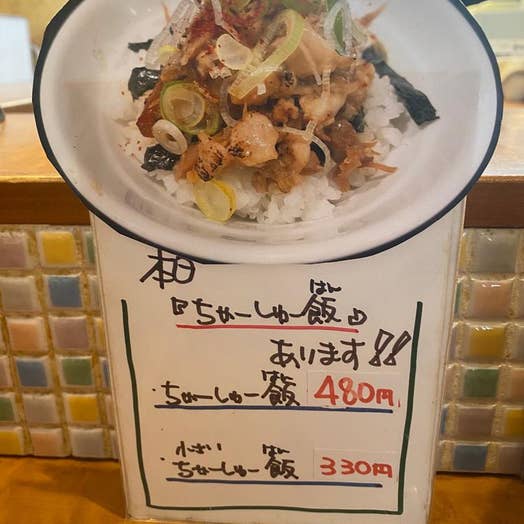 『ちゃーしゅー飯』
はん
あります!!
・ちゃーしゅー飯 480円
はん
小さい
はん
・ちゃーしゅー飯 330円